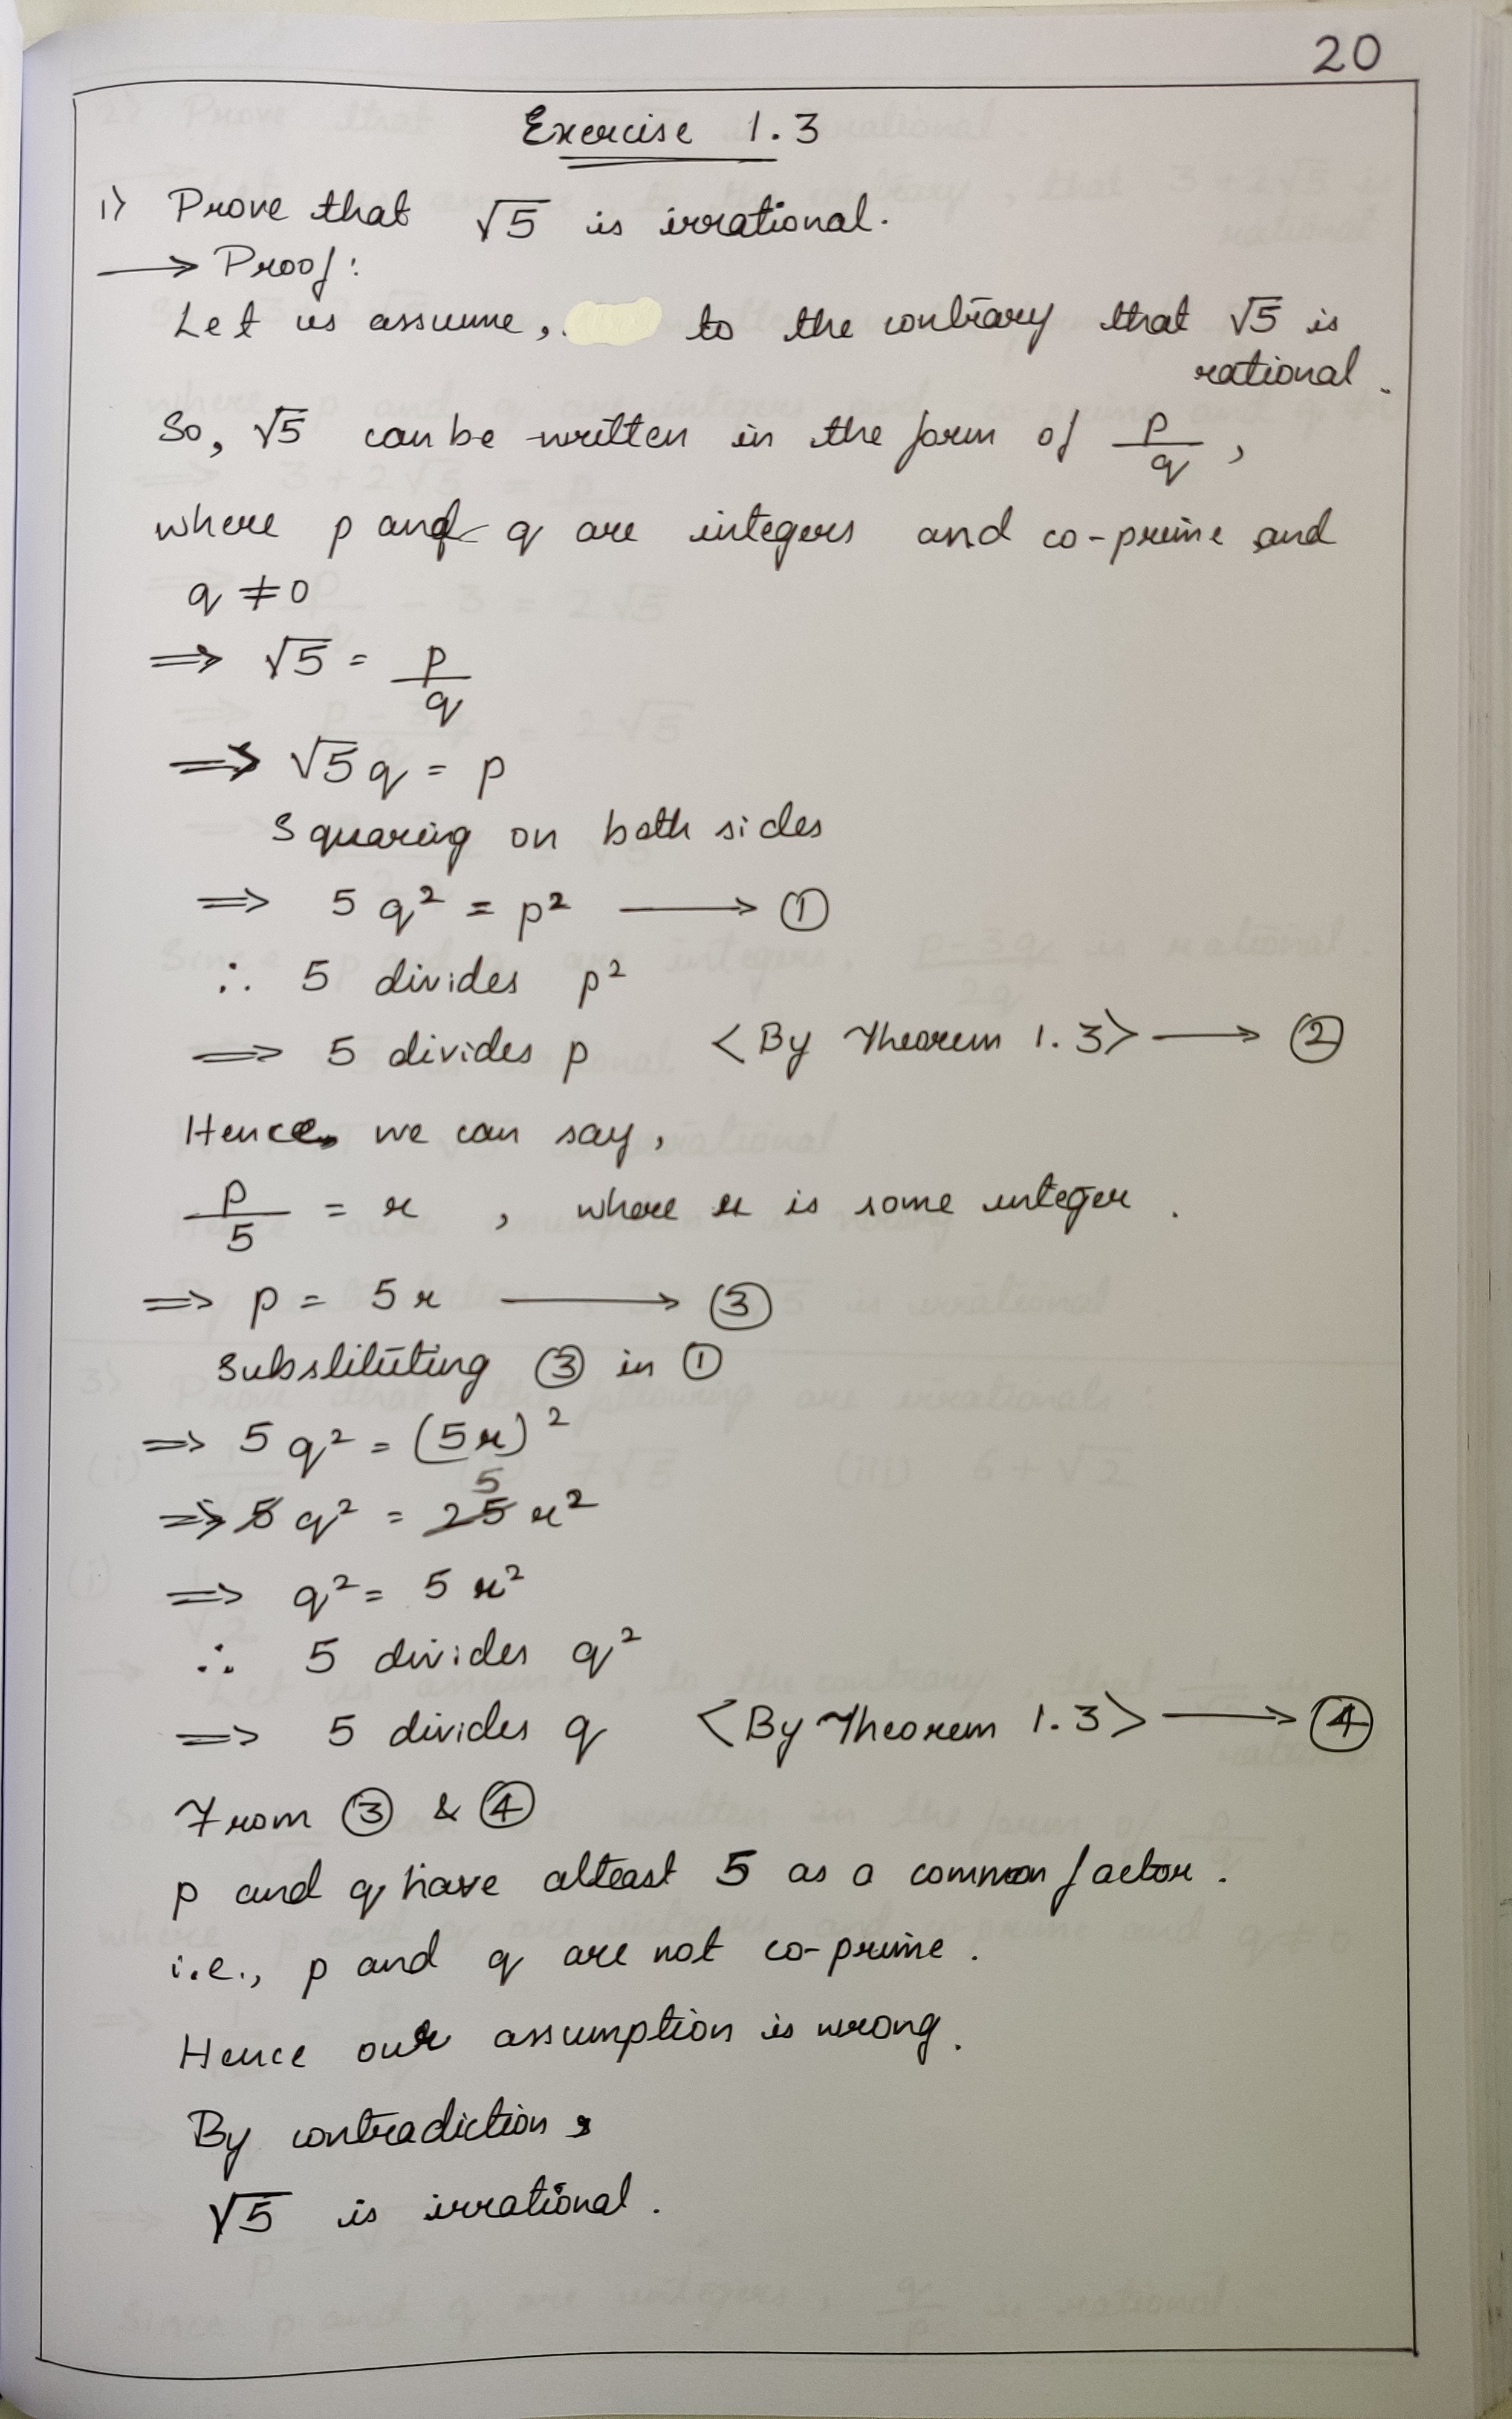 20
Exercise 1.3
1) Prove that √5 is irrational.
⟶ Proof:
Let us assume, to the contrary that √5 is
rational.
So, √5 can be written in the form of p/q,
where p and q are integers and co-prime and
q ≠ 0
⟹ √5 = p/q
⟹ √5 q = p
Squaring on both sides
⟹ 5q² = p² ⟶ ①
∴ 5 divides p²
⟹ 5 divides p <By Theorem 1.3> ⟶ ②
Hence we can say,
p/5 = r , where r is some integer.
⟹ p = 5r ⟶ ③
Substituting ③ in ①
⟹ 5q² = (5r)²
5
⟹ 5q² = 25r²
⟹ q² = 5r²
∴ 5 divides q²
⟹ 5 divides q <By Theorem 1.3> ⟶ ④
From ③ & ④
p and q have atleast 5 as a common factor.
i.e., p and q are not co-prime.
Hence our assumption is wrong.
By contradiction,
√5 is irrational.